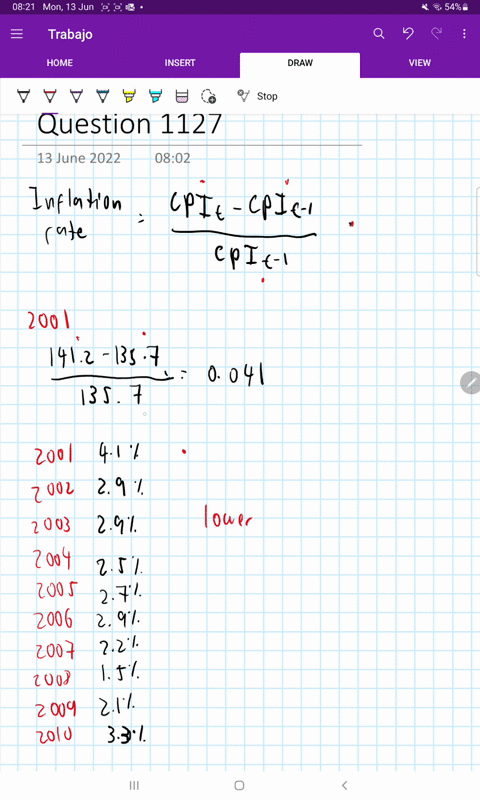 08:21 Mon, 13 Jun 54%
Trabajo
HOME INSERT DRAW VIEW
Stop
Question 1127
13 June 2022 08:02
Inflation rate = CPIt - CPIt-1
CPIt-1
2001
141.2 - 135.7
135.7
= 0.041
2001 4.1%
2002 2.9%
2003 2.9%
lower
2004 2.5%
2005 2.7%
2006 2.9%
2007 2.2%
2008 1.5%
2009 2.1%
2010 3.3%